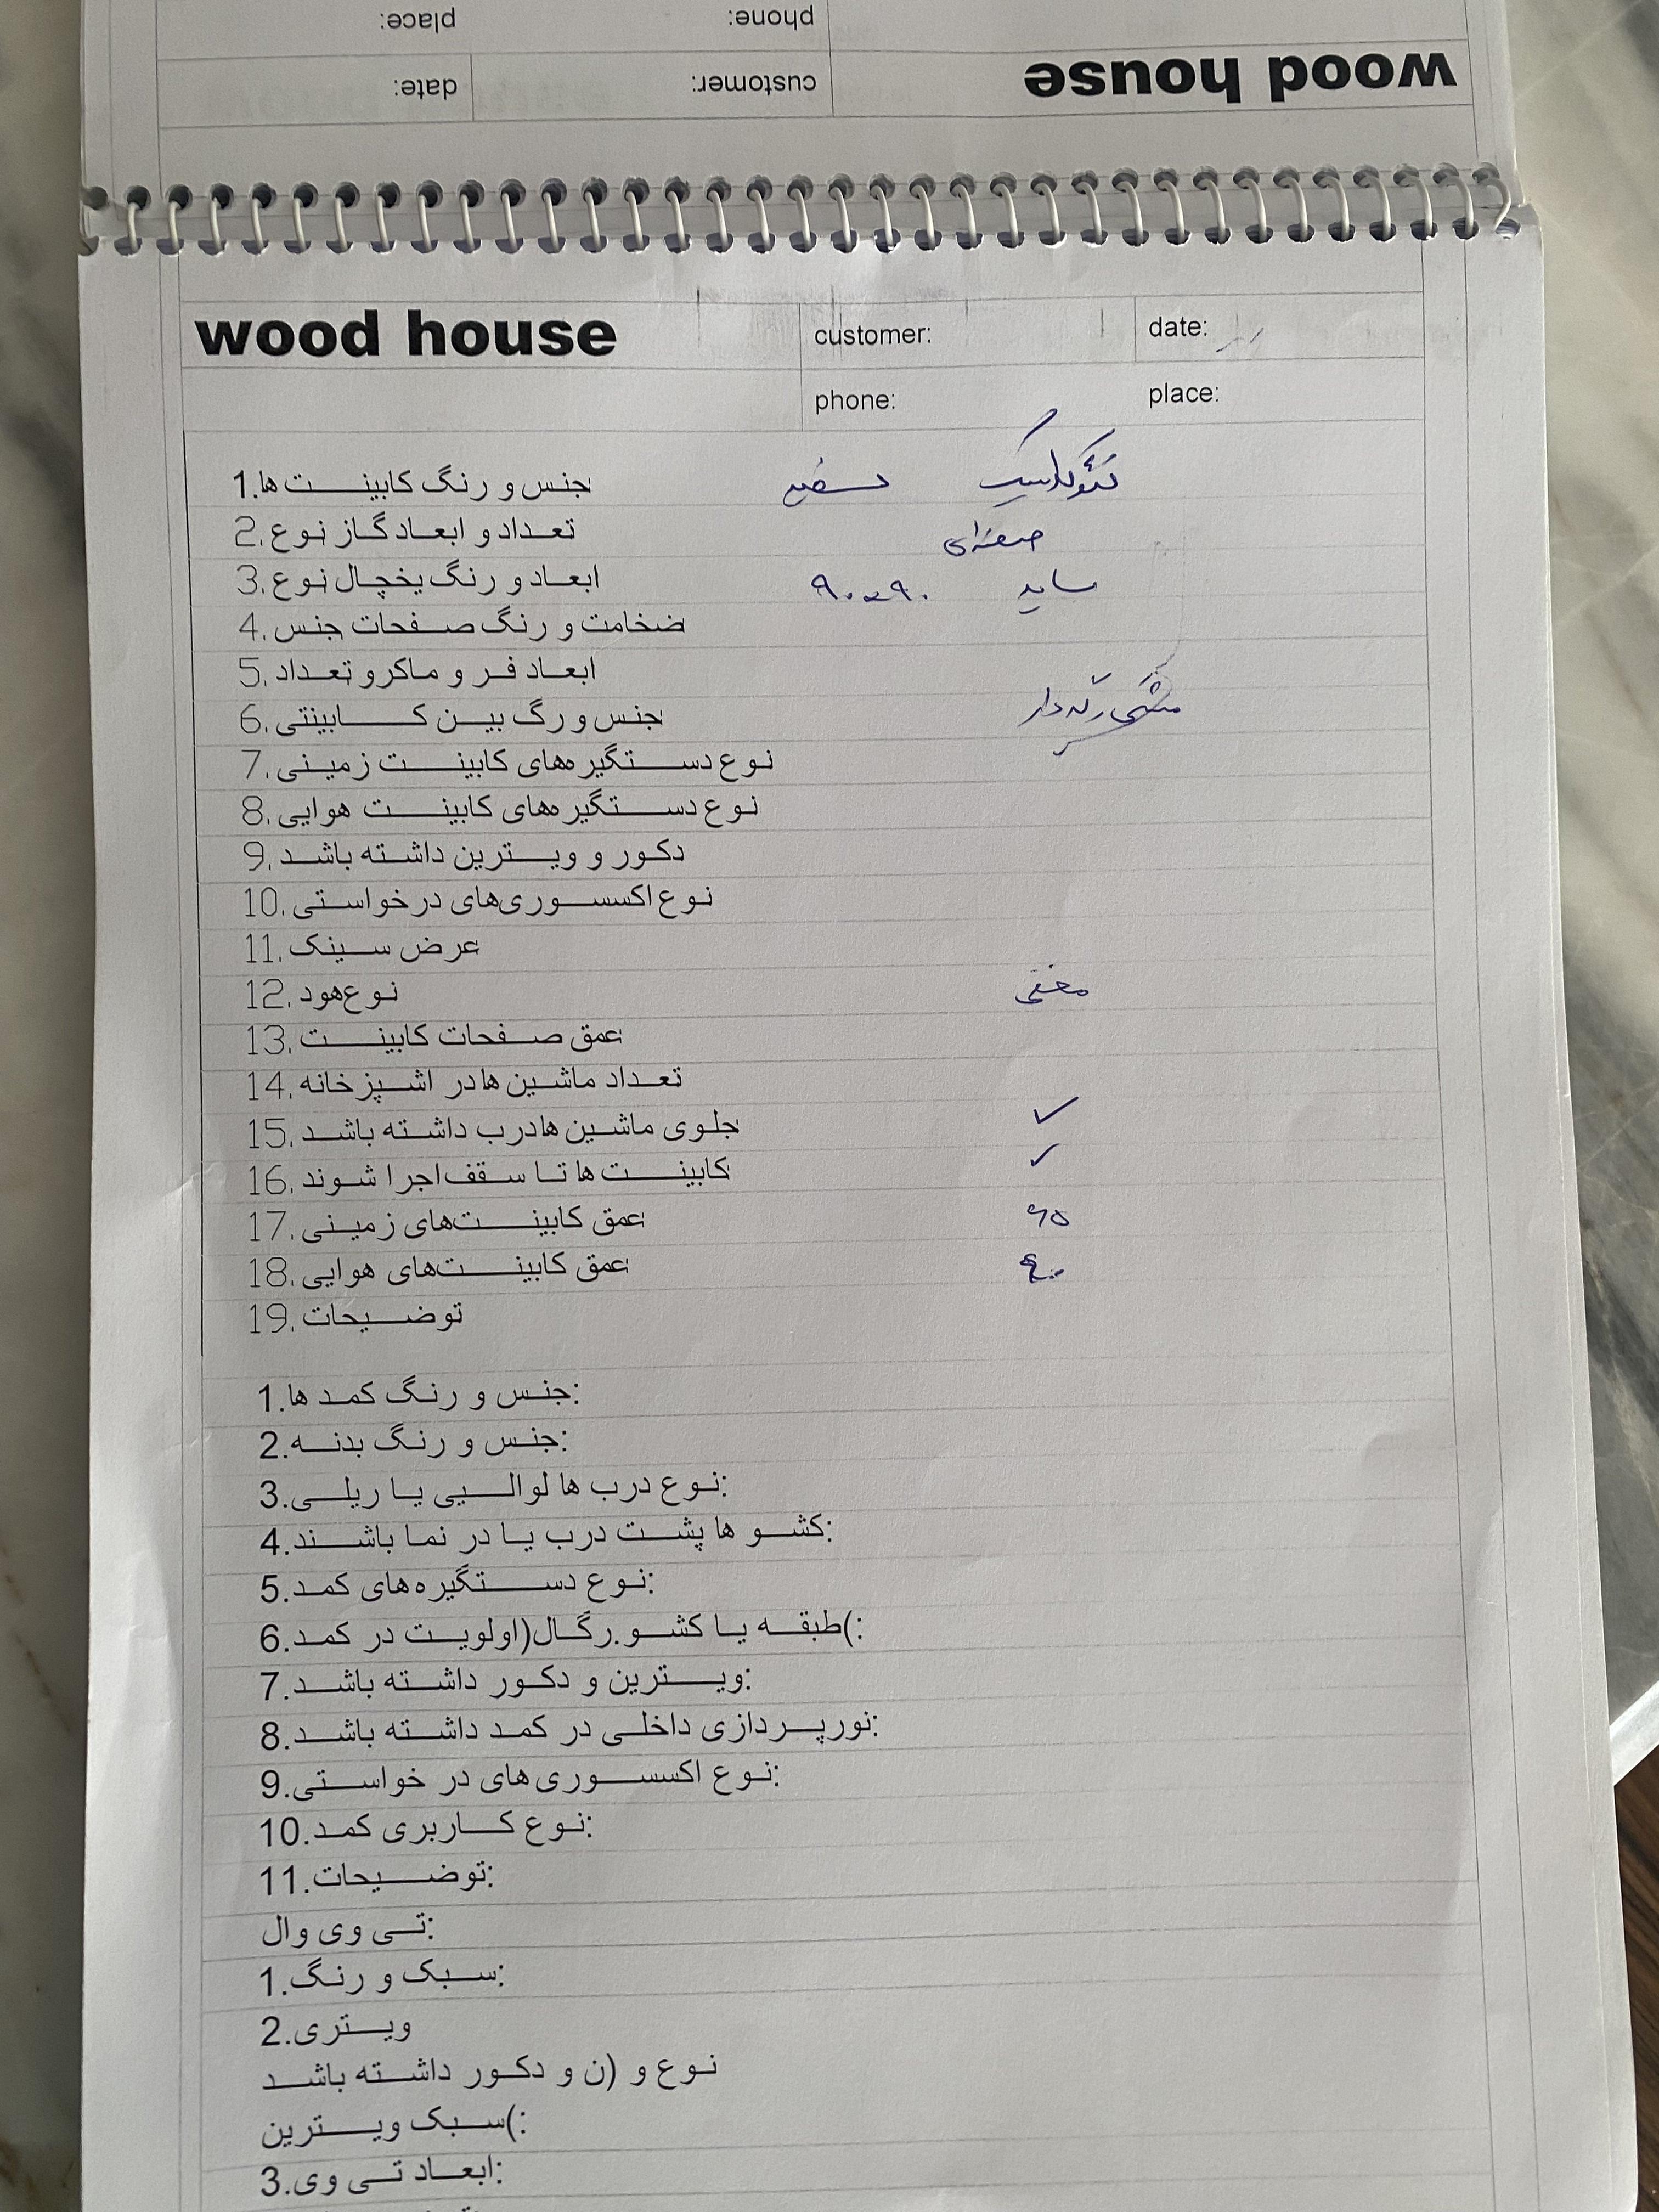 place: phone:
date: customer: wood house
wood house customer: date:
phone: place:
1.جنس و رنگ کابینت ها سفید نئوکلاسیک
2.تعداد و ابعاد گاز نوع صفحه‌ای
3.ابعاد و رنگ یخچال نوع ۹۰ در ۹۰ ساید
4.ضخامت و رنگ صفحات جنس
5.ابعاد فر و ماکرو تعداد
6.جنس و رگ بین کابینتی مشکی رگه دار
7.نوع دستگیره‌های کابینت زمینی
8.نوع دستگیره‌های کابینت هوایی
9.دکور و ویترین داشته باشد
10.نوع اکسسوری‌های درخواستی
11.عرض سینک
12.نوع هود مخفی
13.عمق صفحات کابینت
14.تعداد ماشین ها در اشپزخانه
15.جلوی ماشین ها درب داشته باشد ✓
16.کابینت ها تا سقف اجرا شوند ✓
17.عمق کابینت‌های زمینی ۶۵
18.عمق کابینت‌های هوایی ۴۰
19.توضیحات
1.جنس و رنگ کمد ها:
2.جنس و رنگ بدنه:
3.نوع درب ها لوالیی یا ریلی:
4.کشو ها پشت درب یا در نما باشند:
5.نوع دستگیره های کمد:
6.اولویت در کمد(طبقه یا کشو.رگال):
7.ویترین و دکور داشته باشد:
8.نورپردازی داخلی در کمد داشته باشد:
9.نوع اکسسوری های در خواستی:
10.نوع کاربری کمد:
11.توضیحات:
تی وی وال:
1.سبک و رنگ:
2.ویتری
ن و دکور داشته باشد (نوع و
سبک ویترین):
3.ابعاد تی وی: